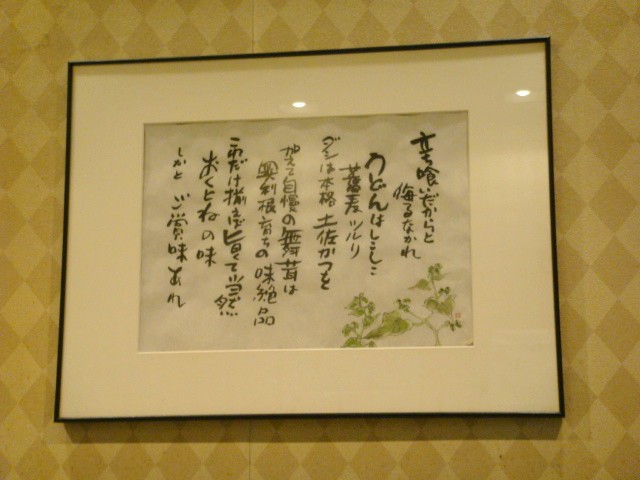 立ち喰いだからと
侮るなかれ
うどんはしこしこ
蕎麦ツルリ
ダシは本格土佐かつを
加えて自慢の舞茸は
奥利根育ちの味絶品
これだけ揃えば旨くて当然
おくとねの味
しかとご賞味あれ